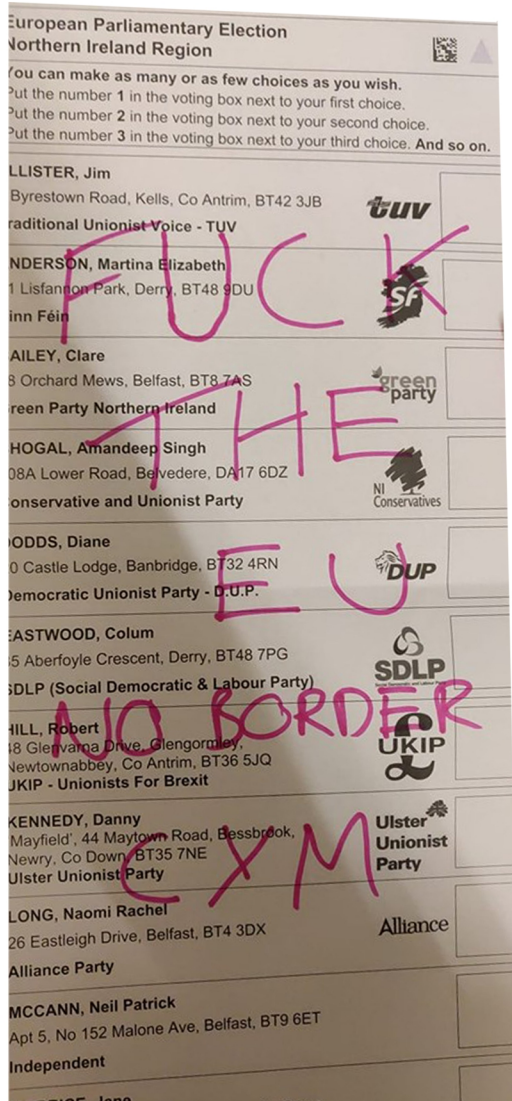 European Parliamentary Election
Northern Ireland Region
You can make as many or as few choices as you wish.
Put the number 1 in the voting box next to your first choice.
Put the number 2 in the voting box next to your second choice.
Put the number 3 in the voting box next to your third choice. And so on.
LLISTER, Jim
Byrestown Road, Kells, Co Antrim, BT42 3JB
raditional Unionist Voice - TUV
tuv
FUCK
NDERSON, Martina Elizabeth
1 Lisfannon Park, Derry, BT48 9DU
inn Féin
SF
AILEY, Clare
8 Orchard Mews, Belfast, BT8 7AS
reen Party Northern Ireland
green
party
THE
HOGAL, Amandeep Singh
08A Lower Road, Belvedere, DA17 6DZ
onservative and Unionist Party
NI
Conservatives
ODDS, Diane
0 Castle Lodge, Banbridge, BT32 4RN
Democratic Unionist Party - D.U.P.
DUP
EU
EASTWOOD, Colum
5 Aberfoyle Crescent, Derry, BT48 7PG
SDLP (Social Democratic & Labour Party)
SDLP
NO BORDER
HILL, Robert
8 Glenvarna Drive, Glengormley,
Newtownabbey, Co Antrim, BT36 5JQ
UKIP - Unionists For Brexit
UKIP
KENNEDY, Danny
'Mayfield', 44 Maytown Road, Bessbrook,
Newry, Co Down, BT35 7NE
Ulster Unionist Party
Ulster
Unionist
Party
CYM
LONG, Naomi Rachel
26 Eastleigh Drive, Belfast, BT4 3DX
Alliance Party
Alliance
MCCANN, Neil Patrick
Apt 5, No 152 Malone Ave, Belfast, BT9 6ET
Independent